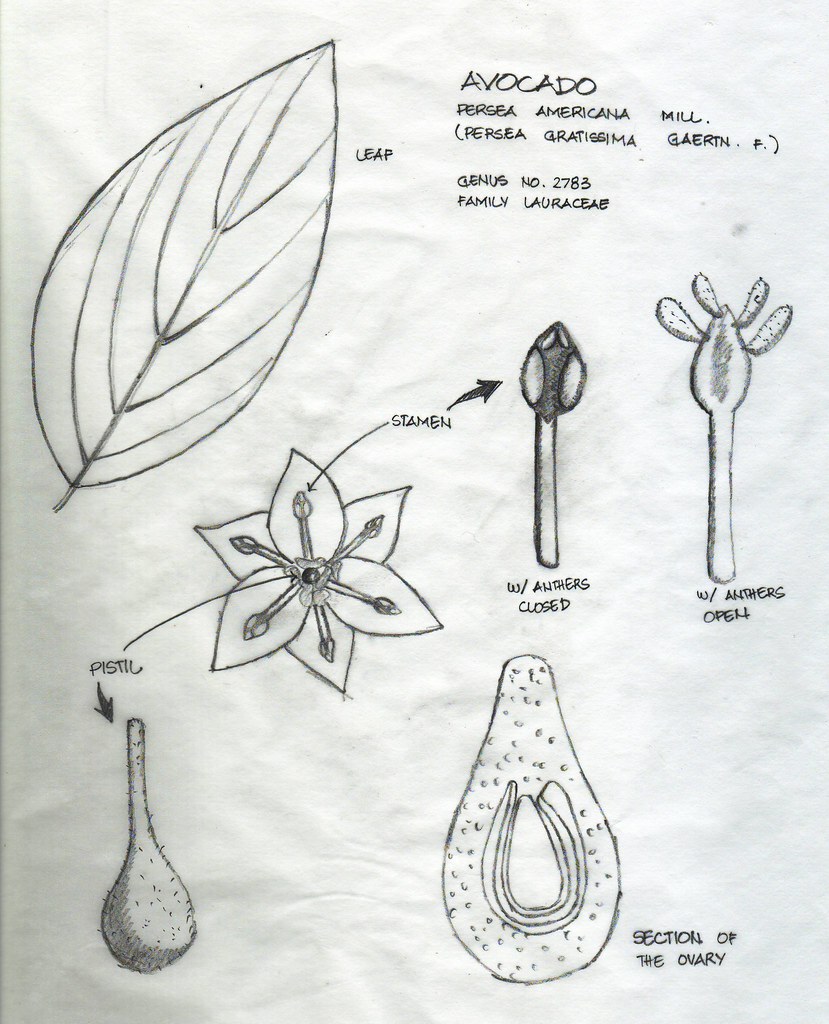 AVOCADO
PERSEA AMERICANA MILL.
(PERSEA GRATISSIMA GAERTN. F.)
LEAF
GENUS NO. 2783
FAMILY LAURACEAE
STAMEN
W/ ANTHERS
CLOSED
W/ ANTHERS
OPEN
PISTIL
SECTION OF
THE OVARY